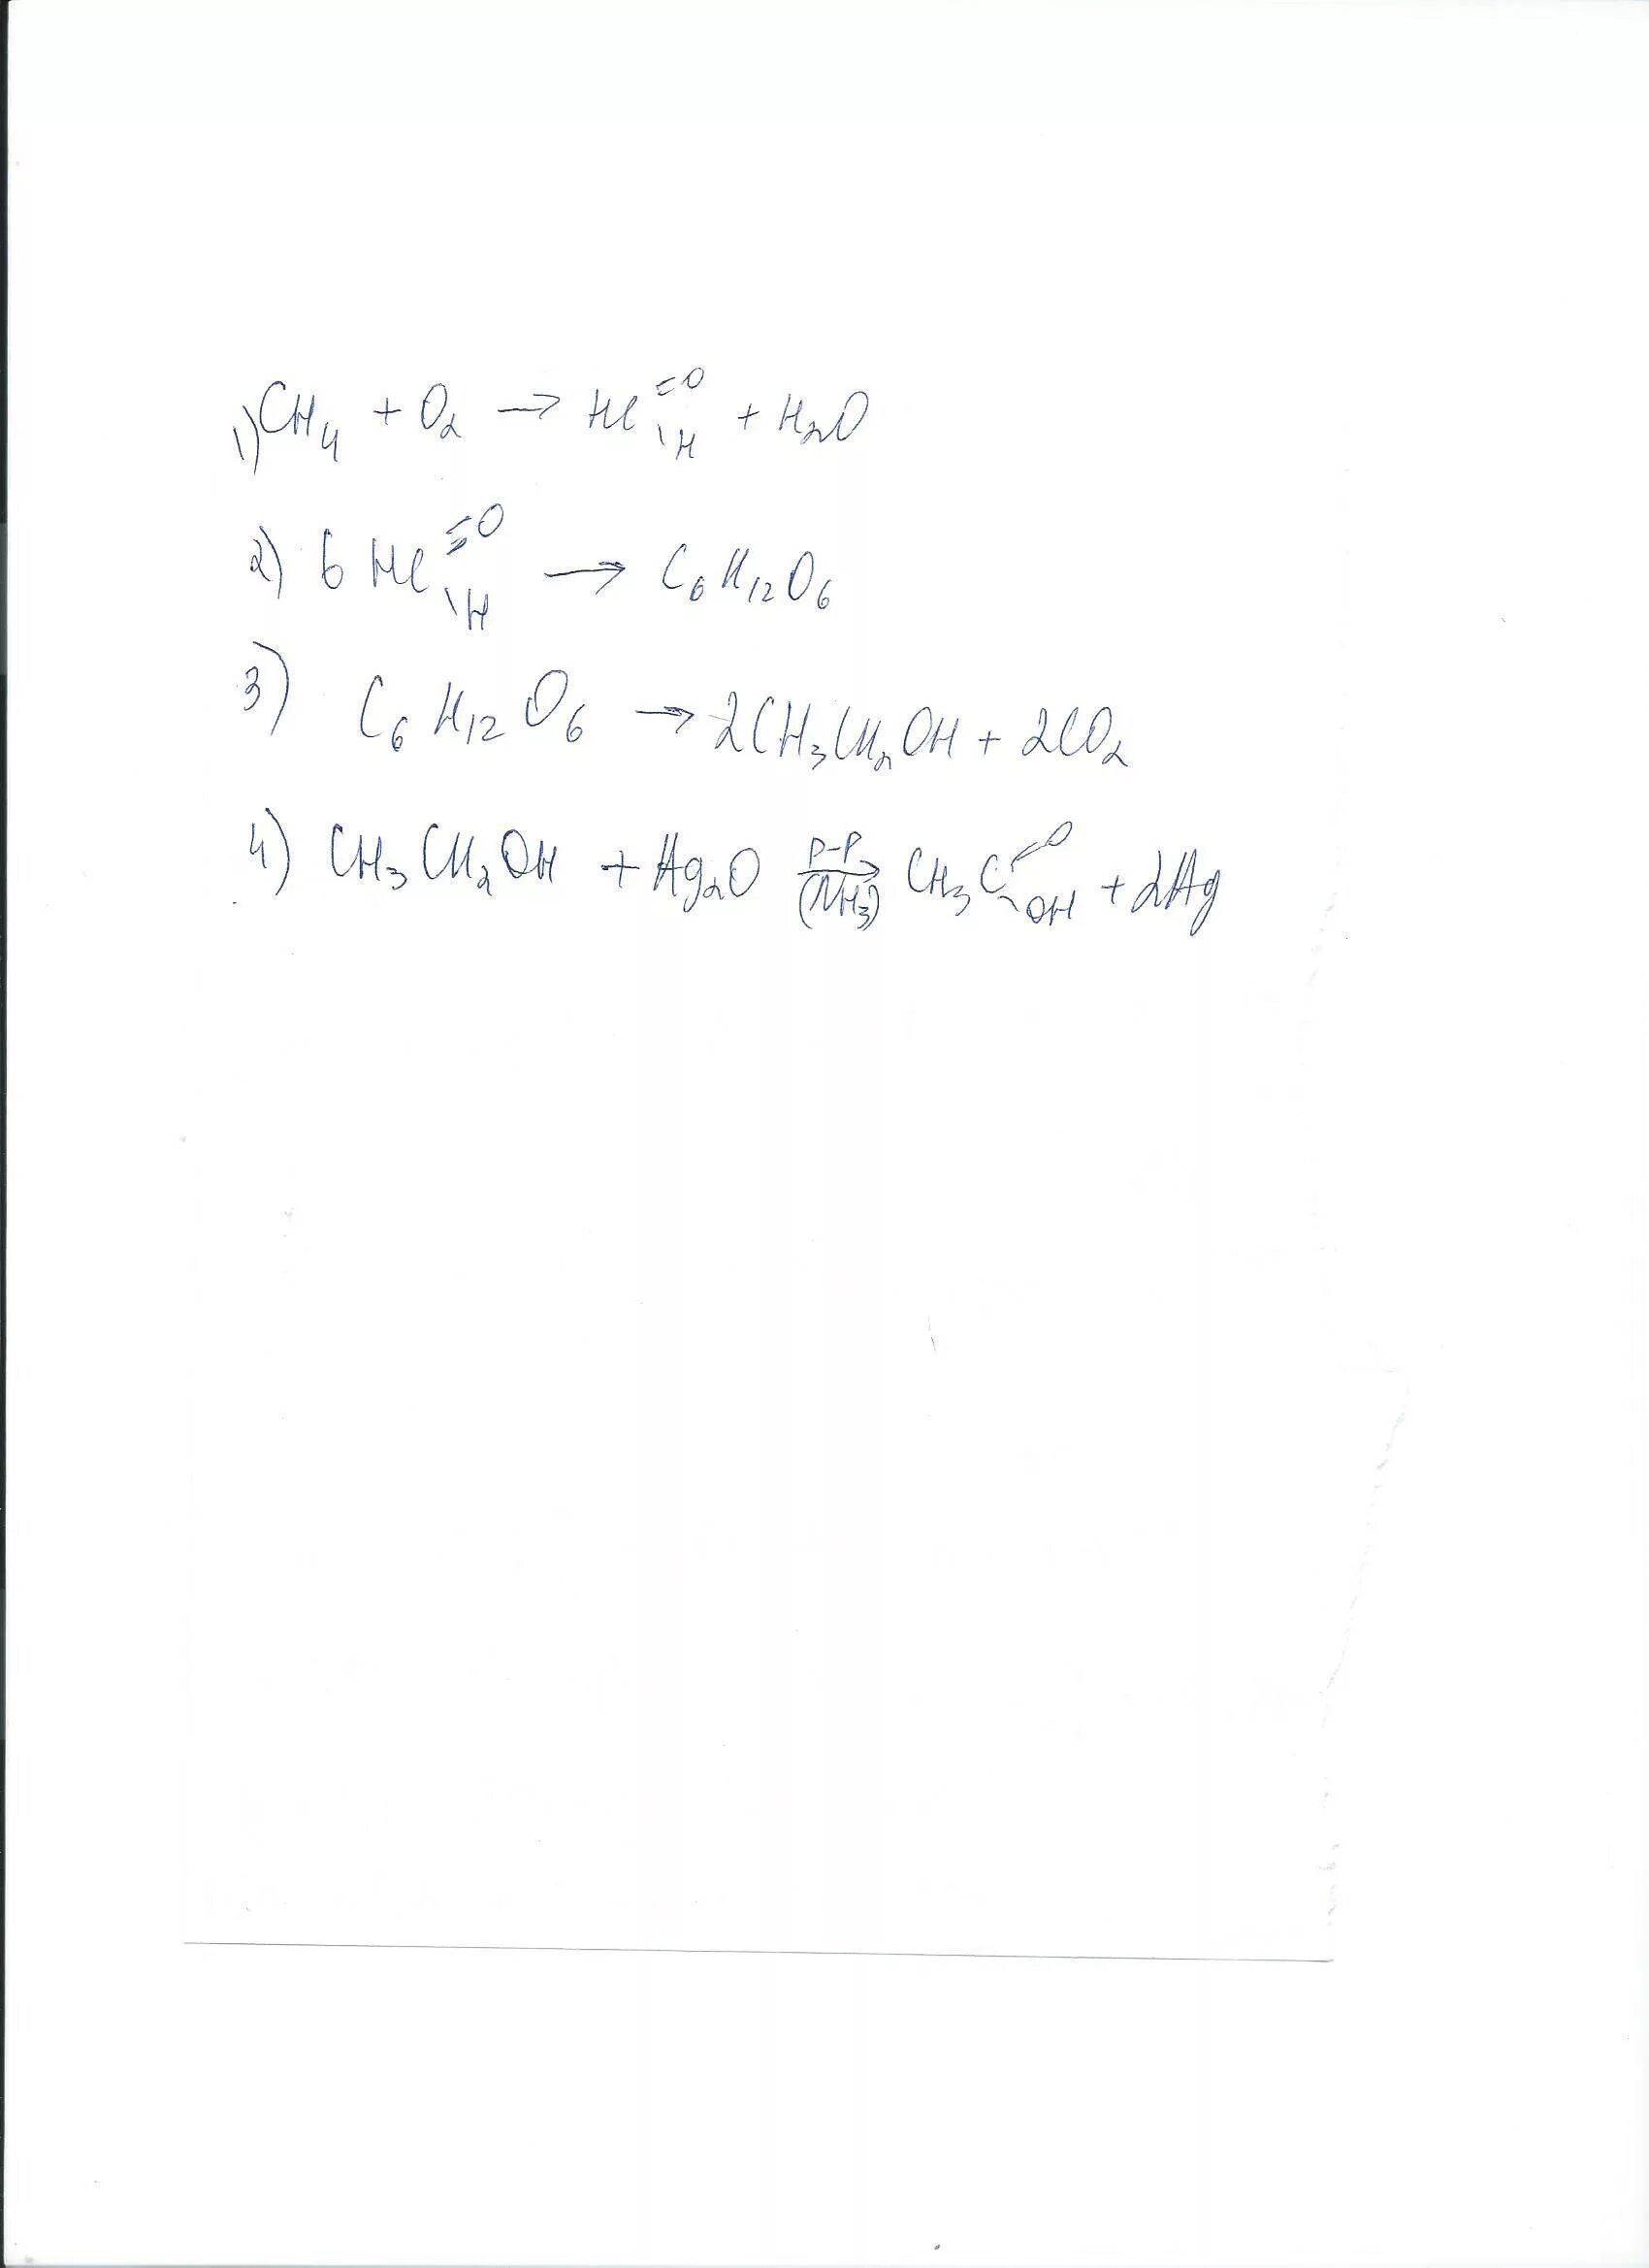 1) CH₄ + O₂ → HC=O\H + H₂O
2) 6 HC=O\H → C₆H₁₂O₆
3) C₆H₁₂O₆ → 2CH₃CH₂OH + 2CO₂
4) CH₃CH₂OH + Ag₂O р-р→(NH₃) CH₃C=O\OH + 2Ag